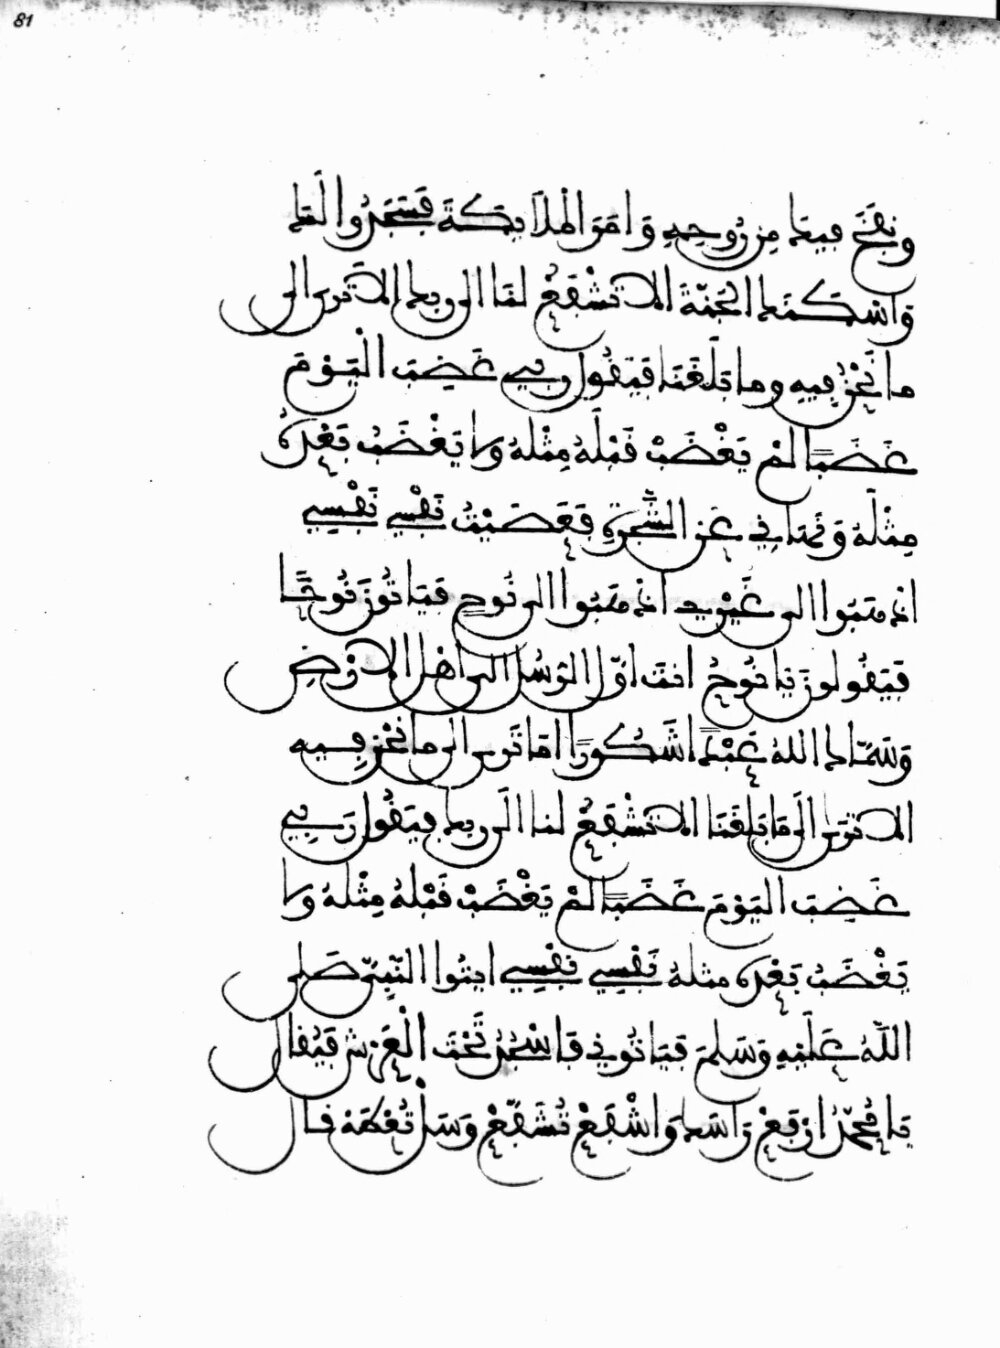 81
وَنَفَخَ فِيكَ مِن رُوحِهِ وَأَمَرَ الْمَلَايِكَةَ فَسَجَدُوا لَكَ
وَأَسْكَنَكَ الْجَنَّةَ أَلَا تَشْفَعُ لَنَا إِلَى رَبِّكَ أَلَا تَرَى إِلَى
مَا نَحْنُ فِيهِ وَمَا بَلَغَنَا فَيَقُولُ رَبِّي غَضِبَ الْيَوْمَ
غَضَبًا لَمْ يَغْضَبْ قَبْلَهُ مِثْلَهُ وَلَا يَغْضَبُ بَعْدَهُ
مِثْلَهُ وَنَهَانِي عَنِ الشَّجَرَةِ فَعَصَيْتُ نَفْسِي نَفْسِي
اذْهَبُوا إِلَى غَيْرِي اذْهَبُوا إِلَى نُوحٍ فَيَأْتُونَ نُوحًا
فَيَقُولُونَ يَا نُوحُ أَنْتَ أَوَّلُ الرُّسُلِ إِلَى أَهْلِ الْأَرْضِ
وَسَمَّاكَ اللَّهُ عَبْدًا شَكُورًا أَمَا تَرَى إِلَى مَا نَحْنُ فِيهِ
أَلَا تَرَى إِلَى مَا بَلَغَنَا أَلَا تَشْفَعُ لَنَا إِلَى رَبِّكَ فَيَقُولُ رَبِّي
غَضِبَ الْيَوْمَ غَضَبًا لَمْ يَغْضَبْ قَبْلَهُ مِثْلَهُ وَلَا
يَغْضَبُ بَعْدَهُ مِثْلَهُ نَفْسِي نَفْسِي ايتُوا النَّبِيَّ صَلَّى
اللَّهُ عَلَيْهِ وَسَلَّمَ فَيَأْتُونِي فَأَسْجُدُ تَحْتَ الْعَرْشِ فَيُقَالُ
يَا مُحَمَّدُ ارْفَعْ رَأْسَكَ وَاشْفَعْ تُشَفَّعْ وَسَلْ تُعْطَهْ قَالَ